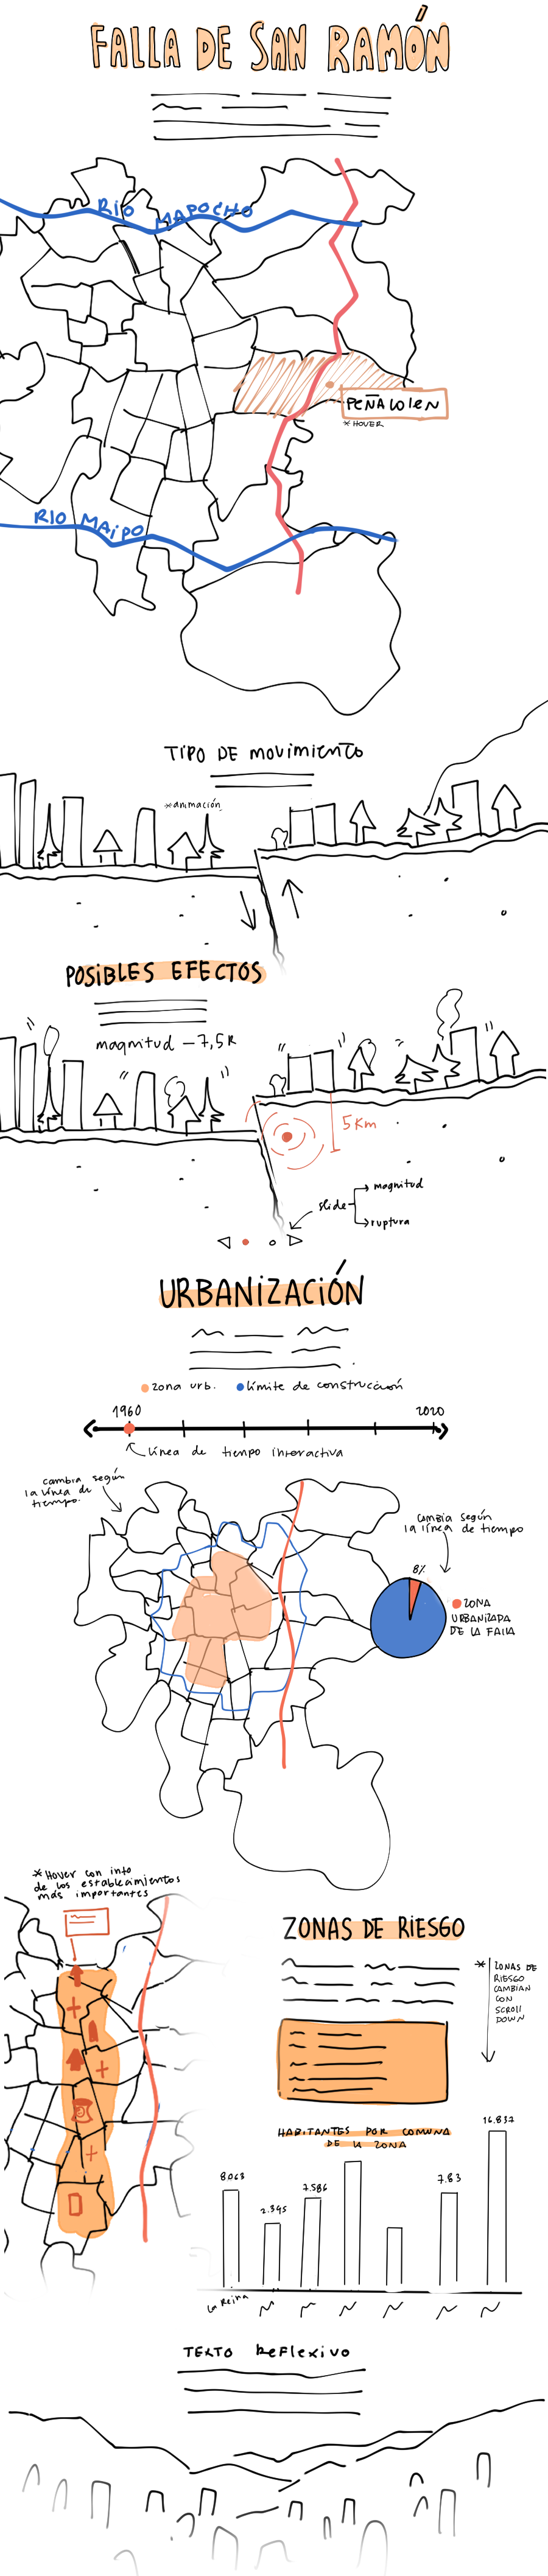 FALLA DE SAN RAMÓN
RÍO MAPOCHO
PEÑALOLEN
* HOVER
RIO MAIPO
TIPO DE MOVIMIENTO
*animación
POSIBLES EFECTOS
magnitud – 7,5 R
5 Km
slide
magnitud
ruptura
URBANIZACIÓN
zona urb.
límite de construcción
1960
2020
Línea de tiempo interactiva
cambia según
la línea de
tiempo.
cambia según
la línea de tiempo
8%
ZONA
URBANIZADA
DE LA FALLA
* Hover con info
de los establecimientos
más importantes
ZONAS DE RIESGO
* ZONAS DE
RIESGO
CAMBIAN
CON
SCROLL
DOWN
HABITANTES POR COMUNA
DE LA ZONA
8063
2.345
7.586
7.83
16.832
La Reina
TEXTO REFLEXIVO